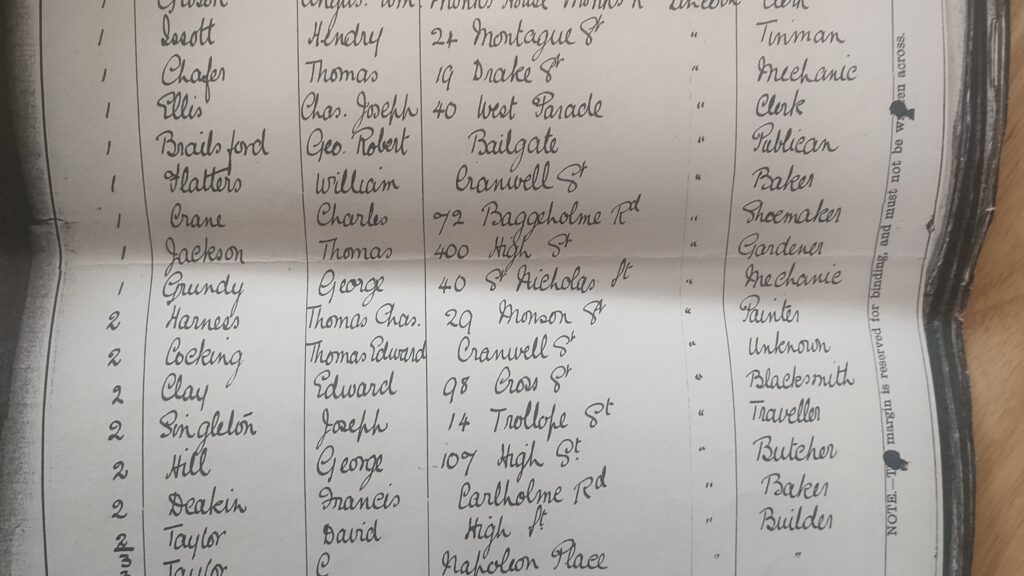 1 Gibson Angus. Wm Monks House Monks R Lincoln Clerk
1 Issott Hendry 24 Montague St " Tinman
1 Chafer Thomas 19 Drake St " Mechanic
1 Ellis Chas. Joseph 40 West Parade " Clerk
1 Brailsford Geo. Robert Bailgate " Publican
1 Flatters William Cranwell St " Baker
1 Crane Charles 72 Baggeholme Rd " Shoemaker
1 Jackson Thomas 400 High St " Gardener
1 Grundy George 40 St Nicholas St " Mechanic
2 Harness Thomas Chas. 29 Monson St " Painter
2 Cocking Thomas Edward Cranwell St " Unknown
2 Clay Edward 98 Cross St " Blacksmith
2 Singleton Joseph 14 Trollope St " Traveller
2 Hill George 107 High St " Butcher
2 Deakin Francis Carlholme Rd " Baker
2 Taylor David High St " Builder
2/3 Taylor C Napoleon Place " "
NOTE.— margin is reserved for binding, and must not be across.